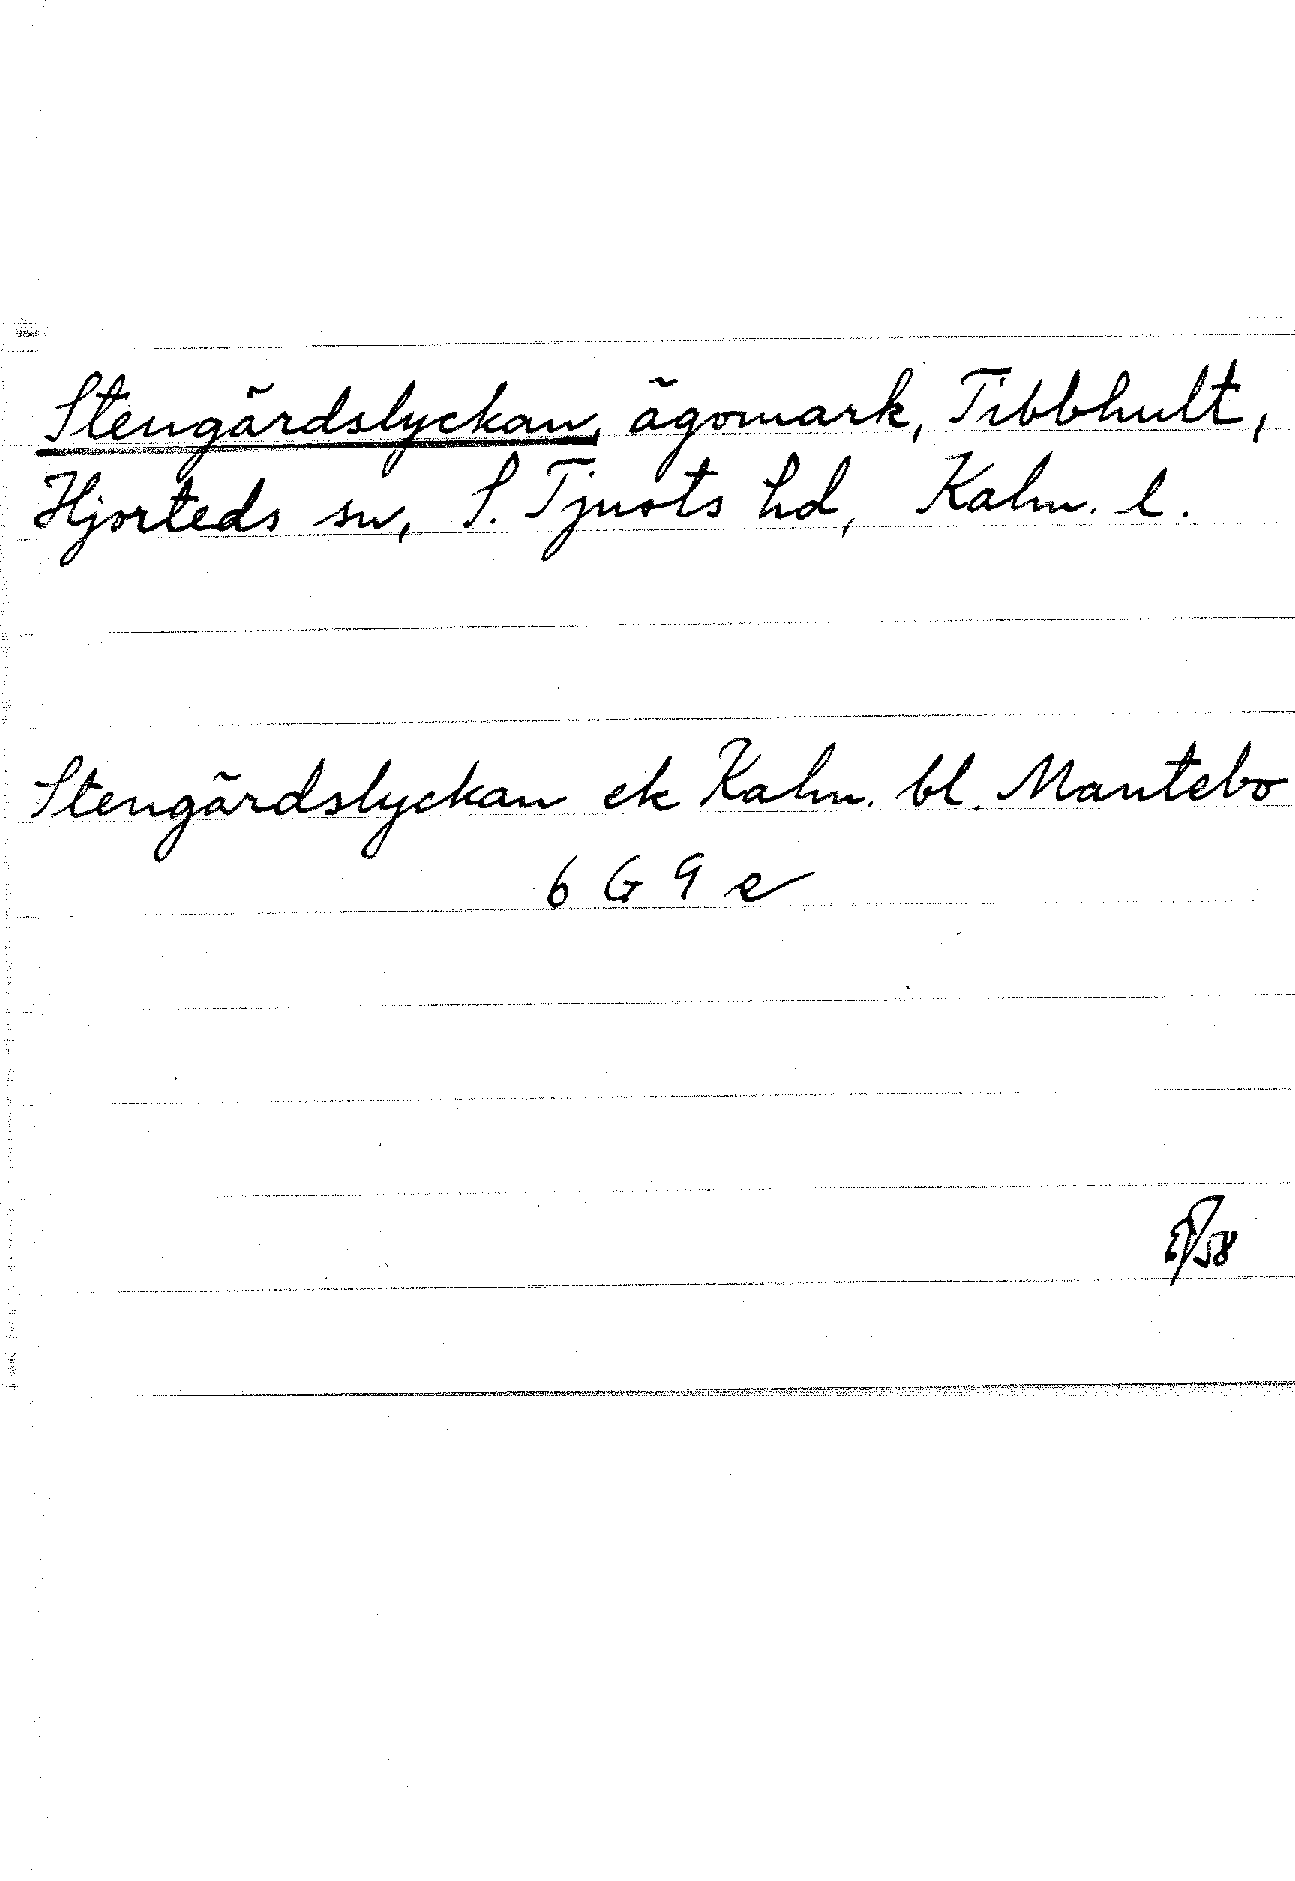 Stengärdslyckan, ägomark, Tibbhult,
Hjorteds sn, S. Tjusts hd, Kalm. l.
Stengärdslyckan ek Kalm. bl. Mantebo
6 G 9 e